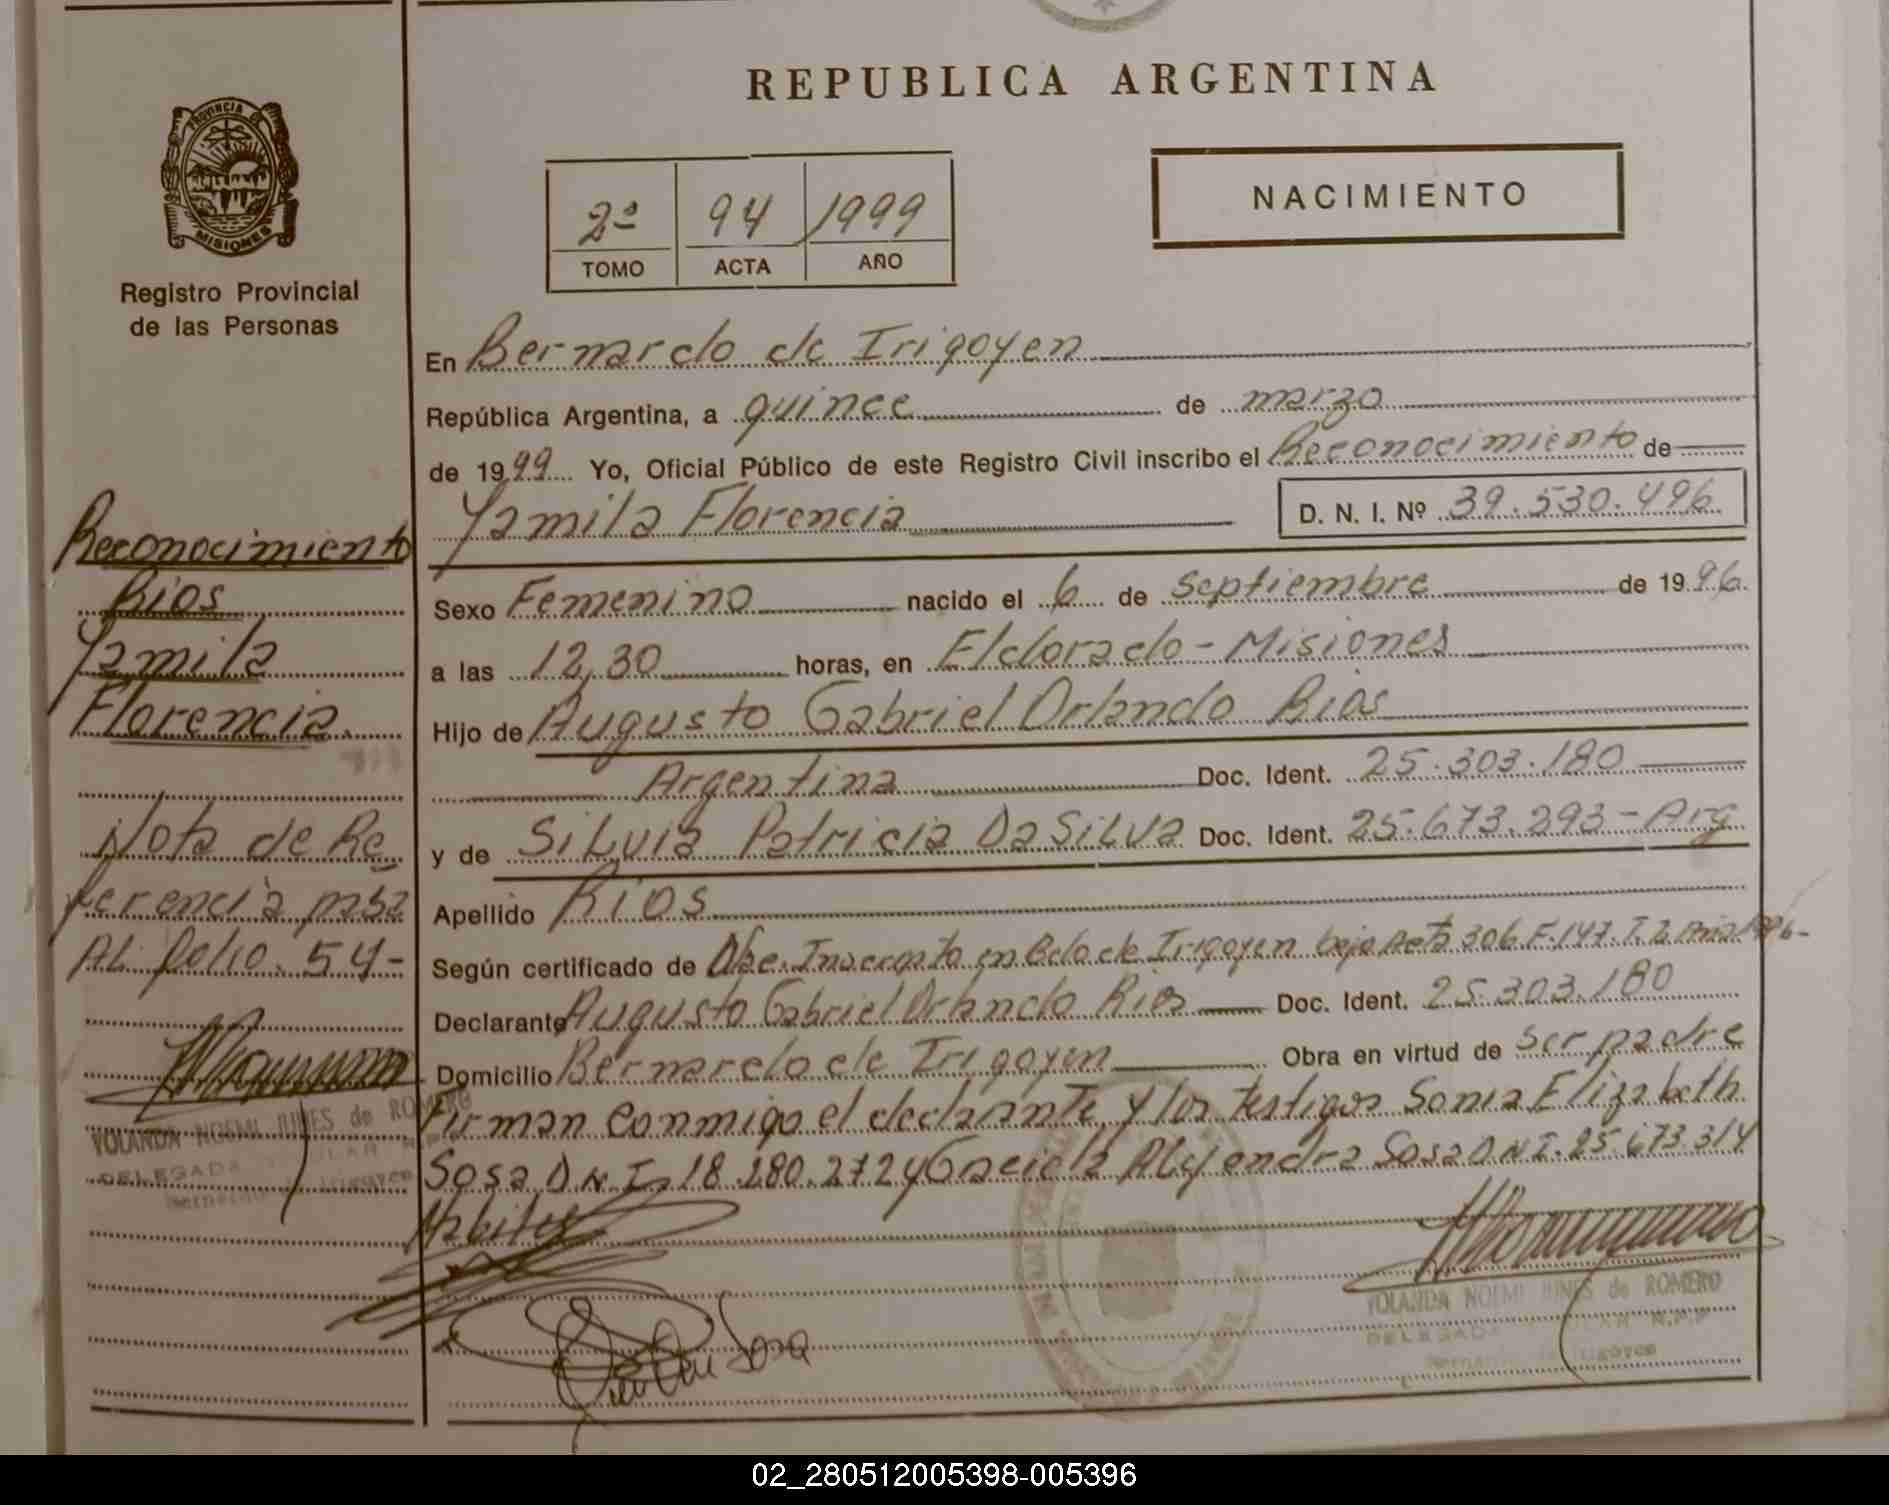 REPUBLICA ARGENTINA
PROVINCIA DE MISIONES
Registro Provincial
de las Personas
2º 94 1999
TOMO ACTA AÑO
NACIMIENTO
En Bernardo de Irigoyen
República Argentina, a quince de marzo
de 1999 Yo, Oficial Público de este Registro Civil inscribo el Reconocimiento de
Yamila Florencia D. N. I. Nº 39.530.496
Sexo Femenino nacido el 6 de Septiembre de 1996.
a las 12,30 horas, en Eldorado - Misiones
Hijo de Augusto Gabriel Orlando Rios
Argentina Doc. Ident. 25.303.180
y de SiLvia Patricia DaSiLva Doc. Ident. 25.673.293 - Arg
Apellido Rios
Según certificado de Inscripta en Bdo de Irigoyen bajo Acta 306 F.147. T.2 Año 1996-
Declarante Augusto Gabriel Orlando Rios Doc. Ident. 25.303.180
Domicilio Bernardo de Irigoyen Obra en virtud de ser padre
Firman conmigo el declarante y los testigos Sonia Elizabeth
Sosa D.N.I. 18.280.272 y Graciela Alejandra Sosa D.N.I. 25.673.314
Sosa
YOLANDA NOEMI de ROMERO
DELEGADA TITULAR R.P.P
Bernardo de Irigoyen
Reconocimiento
Rios
Yamila
Florencia.
Nota de Re
ferencia pasa
AL folio. 54-
YOLANDA NOEMI de ROMERO
DELEGADA TITULAR
Bernardo de Irigoyen
02_280512005398-005396